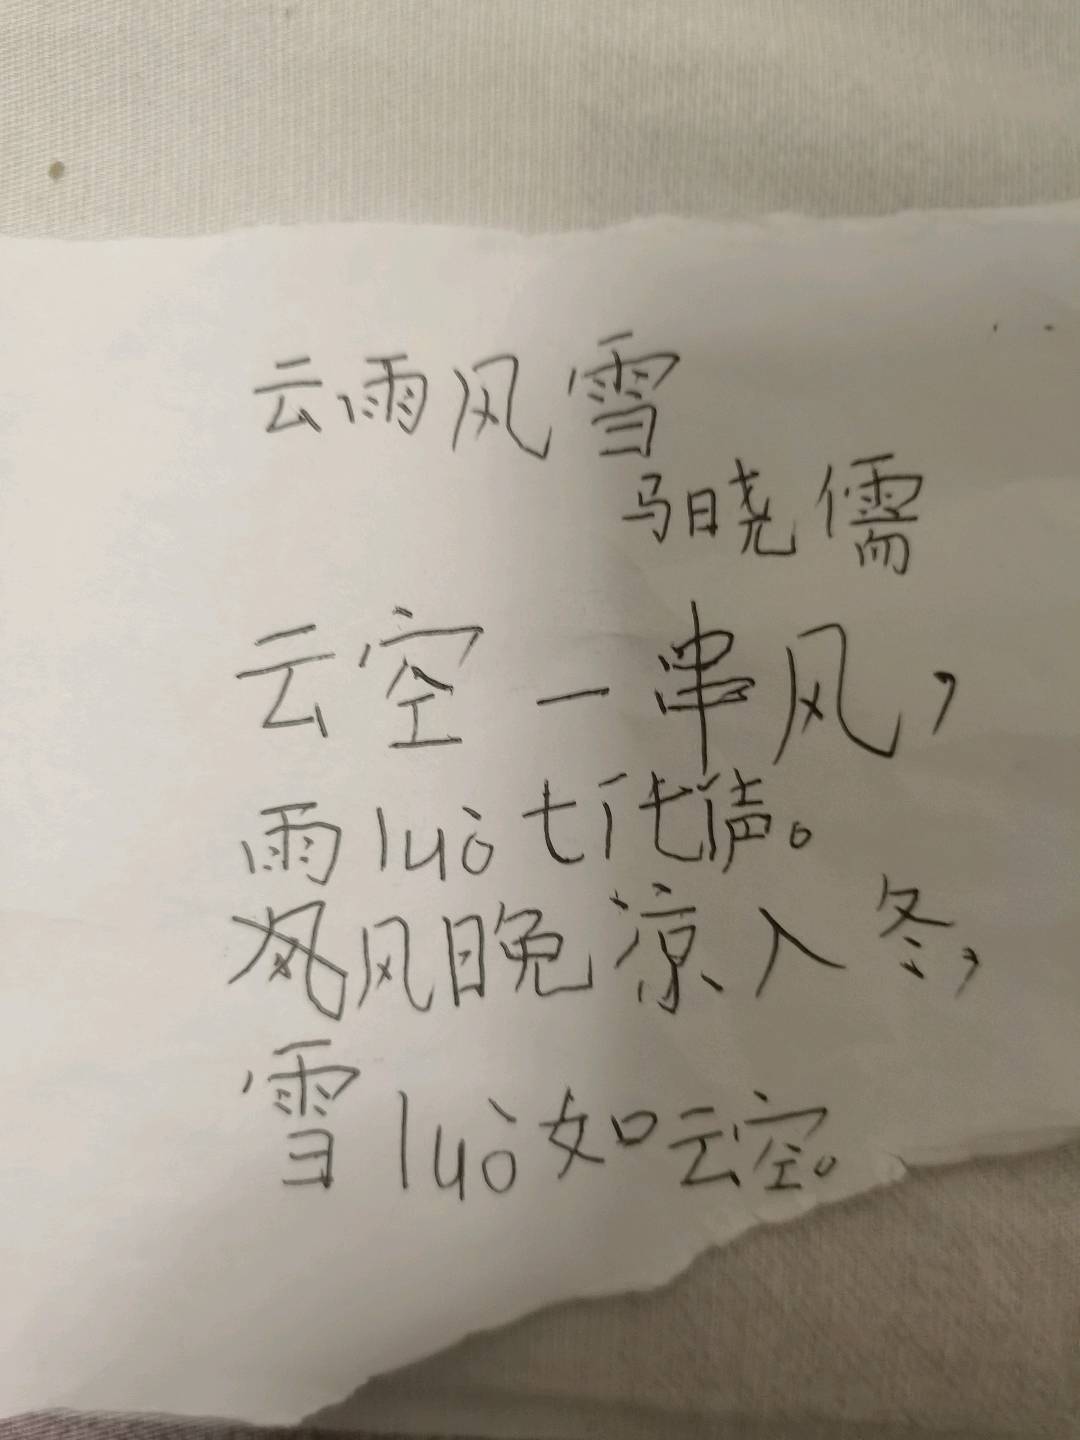 云雨风雪
马晓儒
云空一串风，
雨luò七代声。
风晚凉入冬，
雪luò如云空。